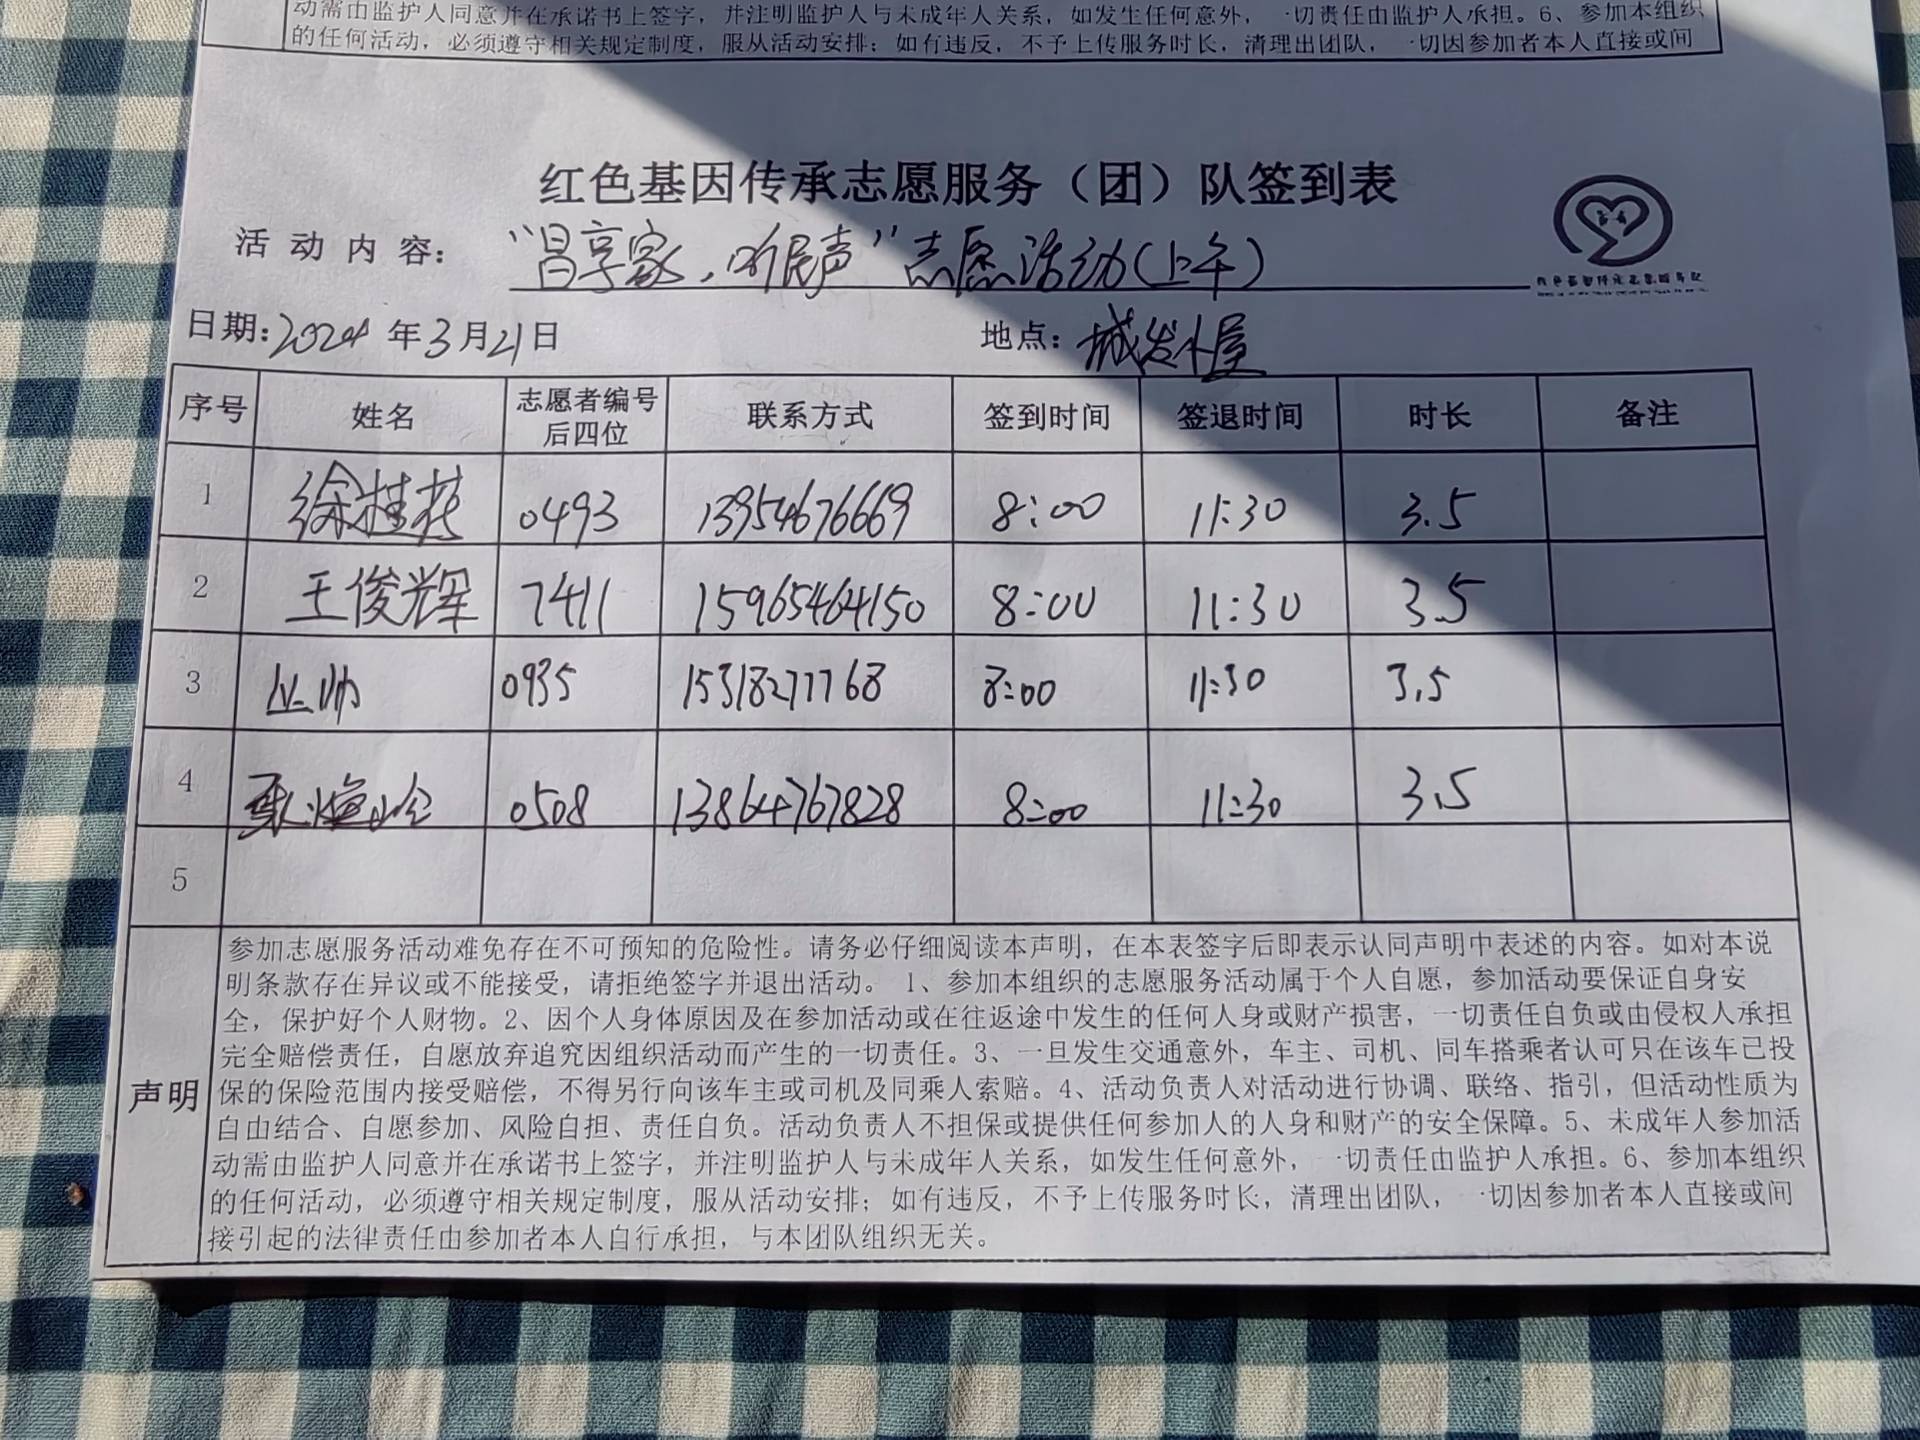 动需由监护人同意并在承诺书上签字，并注明监护人与未成年人关系，如发生任何意外，一切责任由监护人承担。6、参加本组织
的任何活动，必须遵守相关规定制度，服从活动安排；如有违反，不予上传服务时长，清理出团队，一切因参加者本人直接或间
红色基因传承志愿服务（团）队签到表
活动内容：“昌享家，听民声”志愿活动（上午）
日期：2024年3月21日 地点：城发小屋
序号 姓名 志愿者编号后四位 联系方式 签到时间 签退时间 时长 备注
1 徐桂花 0493 13954676669 8:00 11:30 3.5
2 王俊辉 7411 15965464150 8:00 11:30 3.5
3 丛帅 0935 15318277768 8:00 11:30 3.5
4 0508 13864767828 8:00 11:30 3.5
5
声明
参加志愿服务活动难免存在不可预知的危险性。请务必仔细阅读本声明，在本表签字后即表示认同声明中表述的内容。如对本说
明条款存在异议或不能接受，请拒绝签字并退出活动。 1、参加本组织的志愿服务活动属于个人自愿，参加活动要保证自身安
全，保护好个人财物。2、因个人身体原因及在参加活动或在往返途中发生的任何人身或财产损害，一切责任自负或由侵权人承担
完全赔偿责任，自愿放弃追究因组织活动而产生的一切责任。3、一旦发生交通意外，车主、司机、同车搭乘者认可只在该车已投
保的保险范围内接受赔偿，不得另行向该车主或司机及同乘人索赔。4、活动负责人对活动进行协调、联络、指引，但活动性质为
自由结合、自愿参加、风险自担、责任自负。活动负责人不担保或提供任何参加人的人身和财产的安全保障。5、未成年人参加活
动需由监护人同意并在承诺书上签字，并注明监护人与未成年人关系，如发生任何意外，一切责任由监护人承担。6、参加本组织
的任何活动，必须遵守相关规定制度，服从活动安排；如有违反，不予上传服务时长，清理出团队，一切因参加者本人直接或间
接引起的法律责任由参加者本人自行承担，与本团队组织无关。